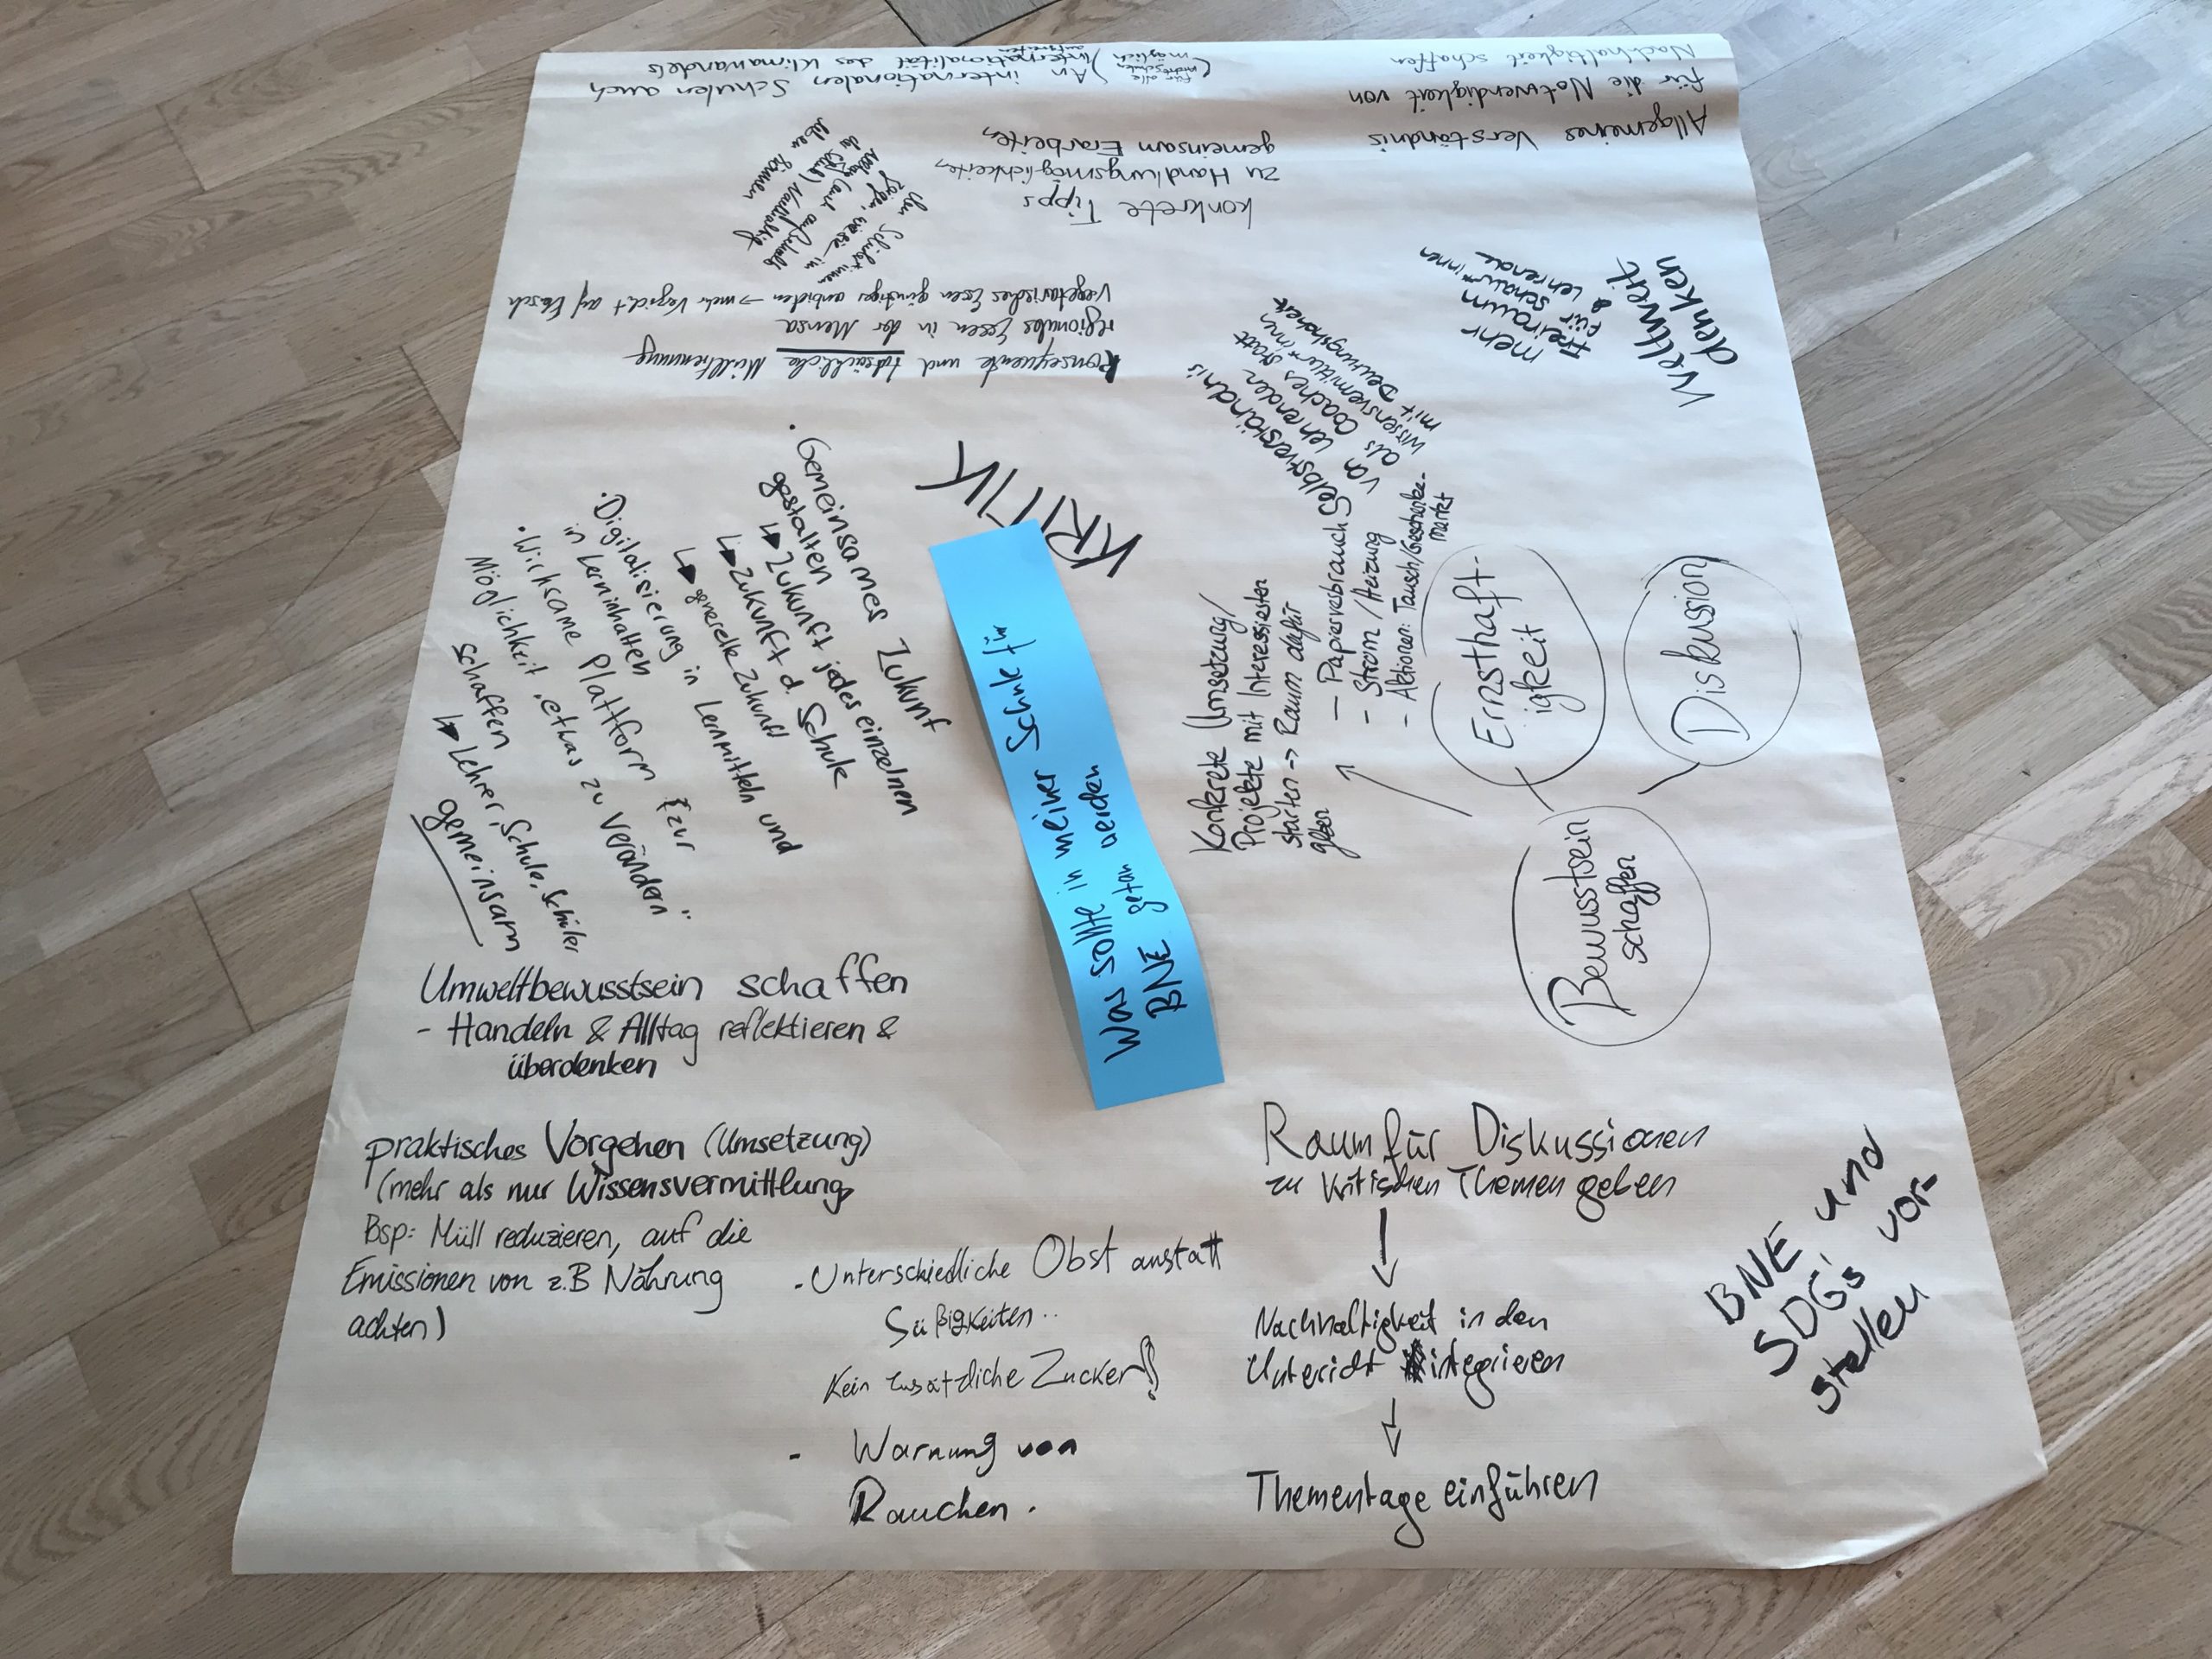 Was sollte in meiner Schule für
BNE getan werden
KRITIK
Allgemeines Verständnis
für die Notwendigkeit von
Nachhaltigkeit schaffen
An internationalen Schulen auch
Internationalität des Klimawandels
aufgreifen
für alle
möglich
konkrete Tipps
zu Handlungsmöglichkeiten,
gemeinsam Erarbeiten
den Schüler*innen
zeigen, wie sie im
Nachhaltig
leben können
Konsequente und tatsächliche Mülltrennung
regionales Essen in der Mensa
Vegetarisches Essen günstiger anbieten → mehr Verzicht auf Fleisch
Weltweit
denken
mehr
Freiraum
für
Schüler*innen
& Lehrende
Selbstverständnis
von Lehrenden
als Coaches statt
Wissensvermittler*innen
mit Deutungshoheit
· Gemeinsames Zukunft
gestalten
↳ Zukunft jedes einzelnen
↳ Zukunft d. Schule
↳ generelle Zukunft
· Digitalisierung in Lernmitteln und
in Lerninhalten
· Wirksame Plattform zur
Möglichkeit „etwas zu verändern"
schaffen
↳ Lehrer, Schule, Schüler
gemeinsam
Konkrete Umsetzung/
Projekte mit Interessierten
starten -> Raum dafür
geben
– Papierverbrauch
- Strom / Heizung
- Aktionen: Tausch/Geschenke-
markt
Ernsthaft-
igkeit
Diskussion
Bewusstsein
schaffen
Umweltbewusstsein schaffen
- Handeln & Alltag reflektieren &
überdenken
praktisches Vorgehen (Umsetzung)
(mehr als nur Wissensvermittlung,
Bsp: Müll reduzieren, auf die
Emissionen von z.B Nahrung
achten)
- Unterschiedliche Obst anstatt
Süßigkeiten..
Kein zusätzliche Zucker!
- Warnung von
Rauchen.
Raum für Diskussionen
zu kritischen Themen geben
↓
Nachhaltigkeit in den
Untericht integrieren
↓
Thementage einführen
BNE und
SDG's vor-
stellen